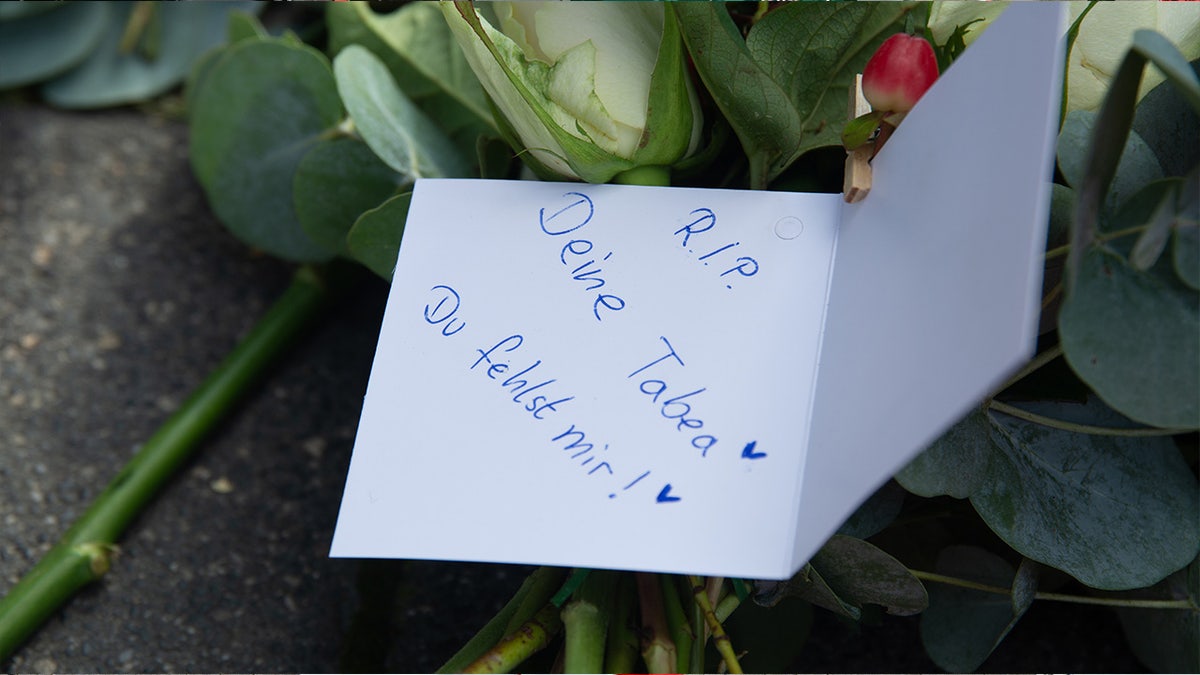 R.I.P.
Du fehlst mir!
Deine Tabea